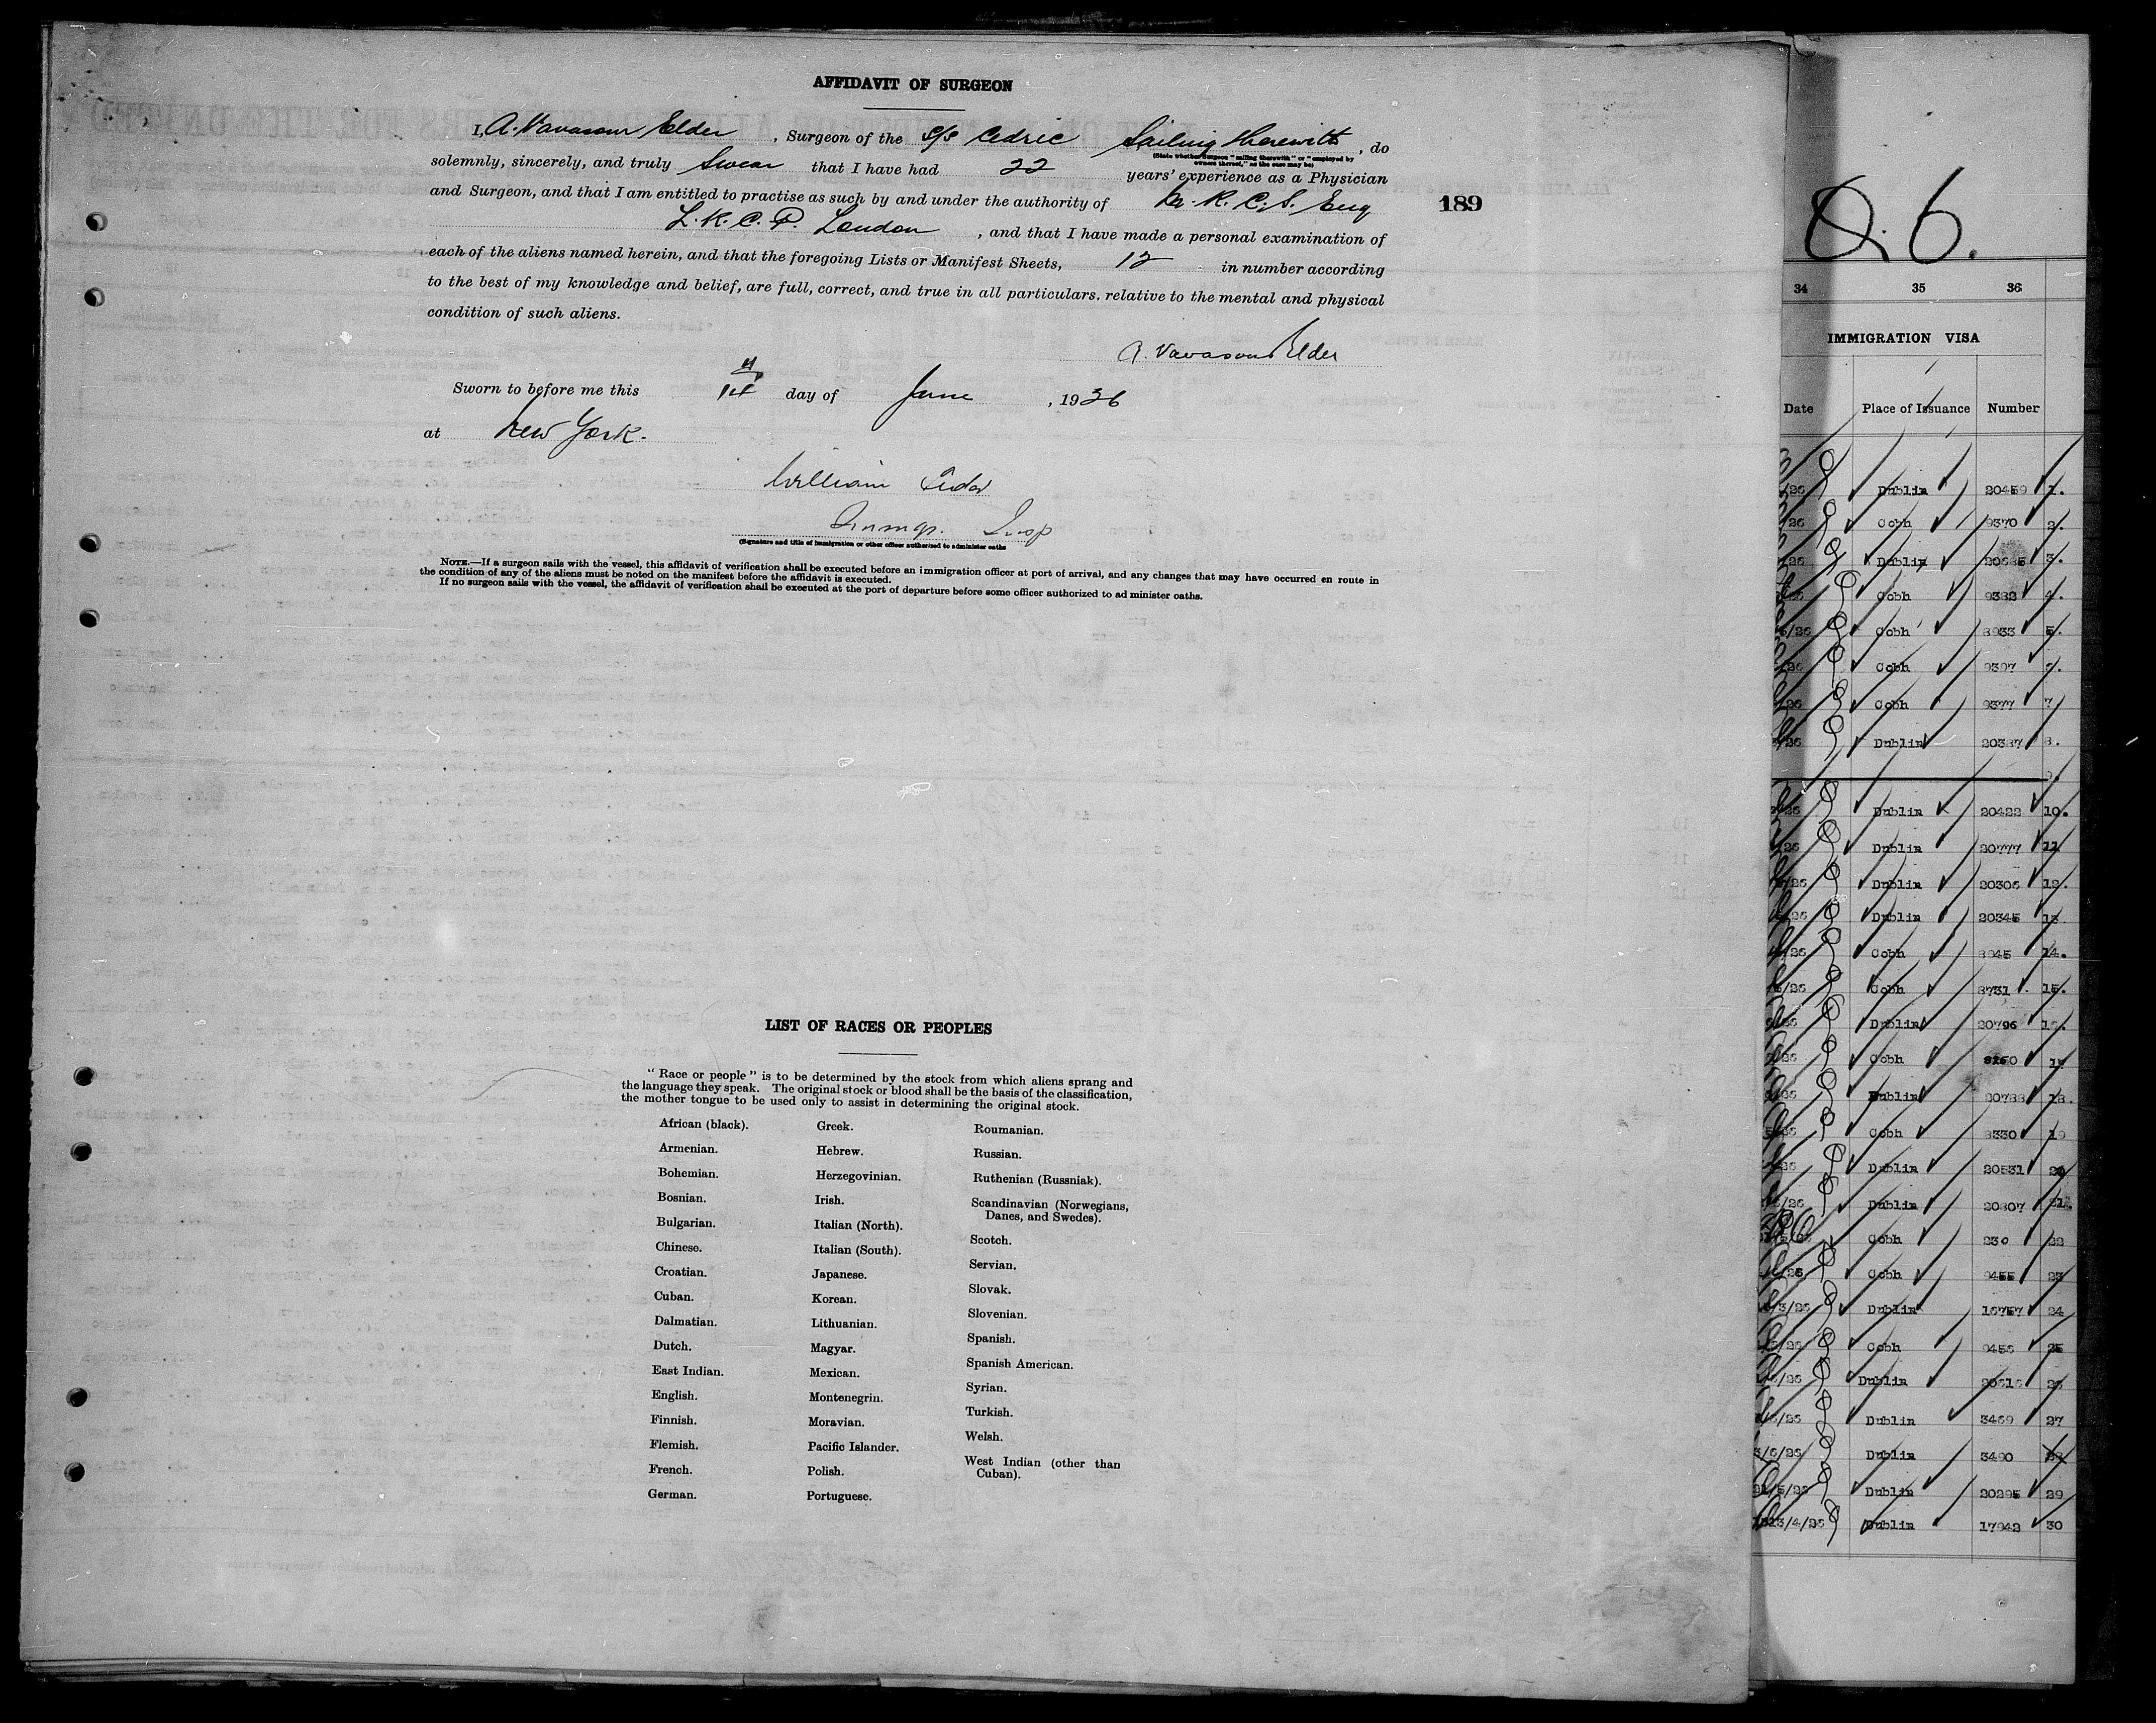 AFFIDAVIT OF SURGEON
I, A. Vavasour Elder, Surgeon of the S/S Cedric Sailing therewith, do
(State whether surgeon "sailing therewith" or "employed by
owners thereof," as the case may be)
solemnly, sincerely, and truly Swear that I have had 22 years' experience as a Physician
and Surgeon, and that I am entitled to practise as such by and under the authority of M. R. C. S. Eng
189
L. R. C. P. London, and that I have made a personal examination of
each of the aliens named herein, and that the foregoing Lists or Manifest Sheets, 12 in number according
to the best of my knowledge and belief, are full, correct, and true in all particulars, relative to the mental and physical
condition of such aliens.
A. Vavasour Elder
Sworn to before me this day of June, 1926
at New York.
William
Immgr. Insp
(Signature and title of immigration or other officer authorized to administer oaths
NOTE.—If a surgeon sails with the vessel, this affidavit of verification shall be executed before an immigration officer at port of arrival, and any changes that may have occurred en route in
the condition of any of the aliens must be noted on the manifest before the affidavit is executed.
If no surgeon sails with the vessel, the affidavit of verification shall be executed at the port of departure before some officer authorized to ad minister oaths.
LIST OF RACES OR PEOPLES
"Race or people" is to be determined by the stock from which aliens sprang and
the language they speak. The original stock or blood shall be the basis of the classification,
the mother tongue to be used only to assist in determining the original stock.
African (black).
Armenian.
Bohemian.
Bosnian.
Bulgarian.
Chinese.
Croatian.
Cuban.
Dalmatian.
Dutch.
East Indian.
English.
Finnish.
Flemish.
French.
German.
Greek.
Hebrew.
Herzegovinian.
Irish.
Italian (North).
Italian (South).
Japanese.
Korean.
Lithuanian.
Magyar.
Mexican.
Montenegrin.
Moravian.
Pacific Islander.
Polish.
Portuguese.
Roumanian.
Russian.
Ruthenian (Russniak).
Scandinavian (Norwegians,
Danes, and Swedes).
Scotch.
Servian.
Slovak.
Slovenian.
Spanish.
Spanish American.
Syrian.
Turkish.
Welsh.
West Indian (other than
Cuban).
6.
34 35 36
IMMIGRATION VISA
Date Place of Issuance Number
/26 Dublin 20459 1.
26 Cobh 9370 2.
/26 Dublin 3.
Cobh 9382 4.
/26 Cobh 8933 5.
26 Cobh 9397
26 Cobh 9377 7
/26 Dublin 20387 8.
Dublin 20422 10.
26 Dublin 20777 11
/26 Dublin 20306 12.
/26 Dublin 20345 13
/26 Cobh 8945 14.
/26 Cobh 8731 15.
Dublin 20796 16.
/26 Cobh 17
Dublin 20788 18.
Cobh 8330 19
26 Dublin 20531 20
/26 Dublin 20807 21
Cobh 230 22
/26 Cobh 9455 23
/3/26 Dublin 16757 24
/26 Cobh 9456 25
/26 Dublin 20616 26
/26 Dublin 3469 27
3/6/26 Dublin 3490 28
21/5/26 Dublin 20295 29
13/4/26 Dublin 17942 30